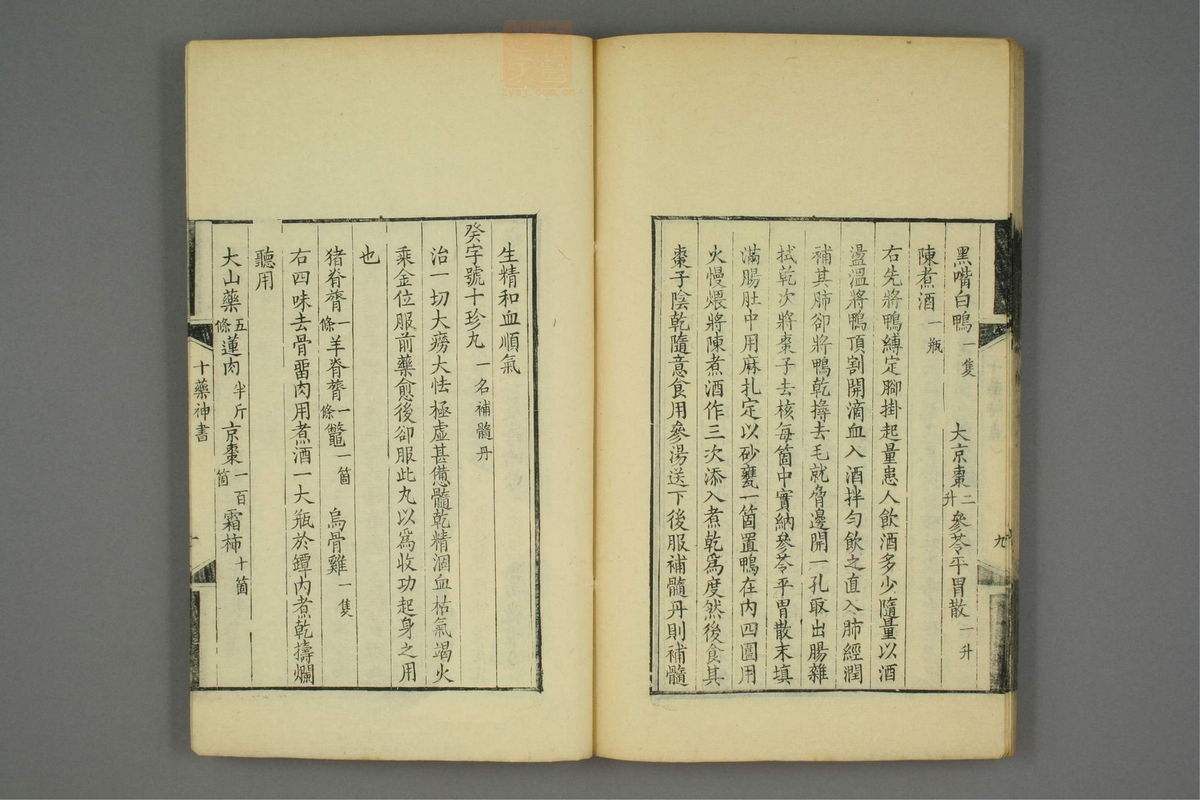 黑嘴白鴨一隻 大京棗二升 參苓平胃散一升
陳煮酒一瓶
右先將鴨縛定腳掛起量患人飲酒多少隨量以酒
盪溫將鴨頂割開滴血入酒拌勻飲之直入肺經潤
補其肺卻將鴨乾撏去毛就脅邊開一孔取出腸雜
拭乾次將棗子去核每箇中實納參苓平胃散末填
滿腸肚中用麻扎定以砂甕一箇置鴨在內四圍用
火慢煨將陳煮酒作三次添入煮乾爲度然後食其
棗子陰乾隨意食用參湯送下後服補髓丹則補髓
九
生精和血順氣
癸字號十珍丸一名補髓丹
治一切大癆大怯極虛甚憊髓乾精涸血枯氣竭火
乘金位服前藥愈後卻服此丸以爲收功起身之用
也
猪脊膂一條 羊脊膂一條 鼈一箇 烏骨雞一隻
右四味去骨畱肉用煮酒一大瓶於罈內煮乾擣爛
聽用
大山藥五條 蓮肉半斤 京棗一百箇 霜柿十箇
十藥神書
zysj.com.cn